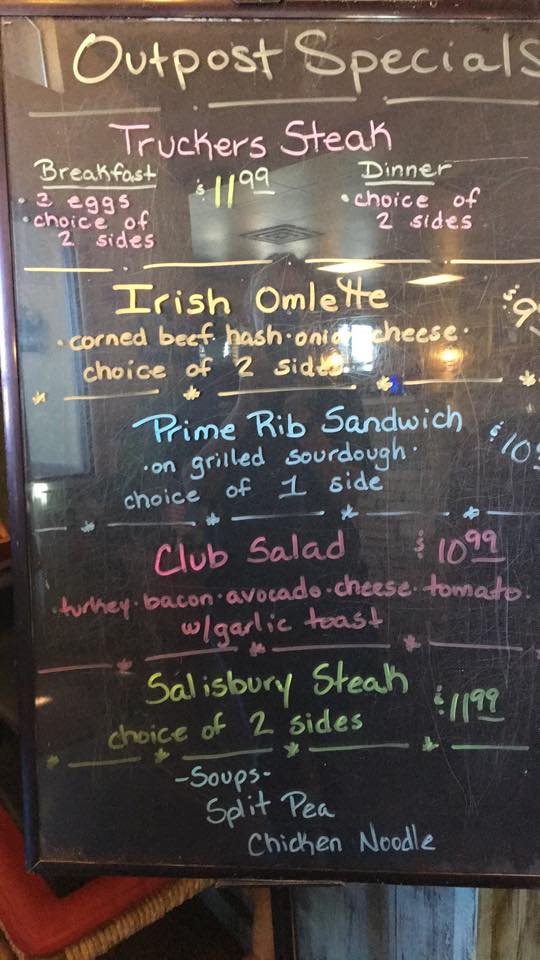 Outpost Specials
Truckers Steak
Breakfast
$11.99
Dinner
• 2 eggs
• choice of
2 sides
• choice of
2 sides
Irish Omlette
$9
• corned beef hash • onion cheese •
choice of 2 sides
Prime Rib Sandwich
$10
• on grilled sourdough •
choice of 1 side
Club Salad $10.99
• turkey • bacon • avocado • cheese • tomato •
w/garlic toast
Salisbury Steak $11.99
choice of 2 sides
-Soups-
Split Pea
Chicken Noodle